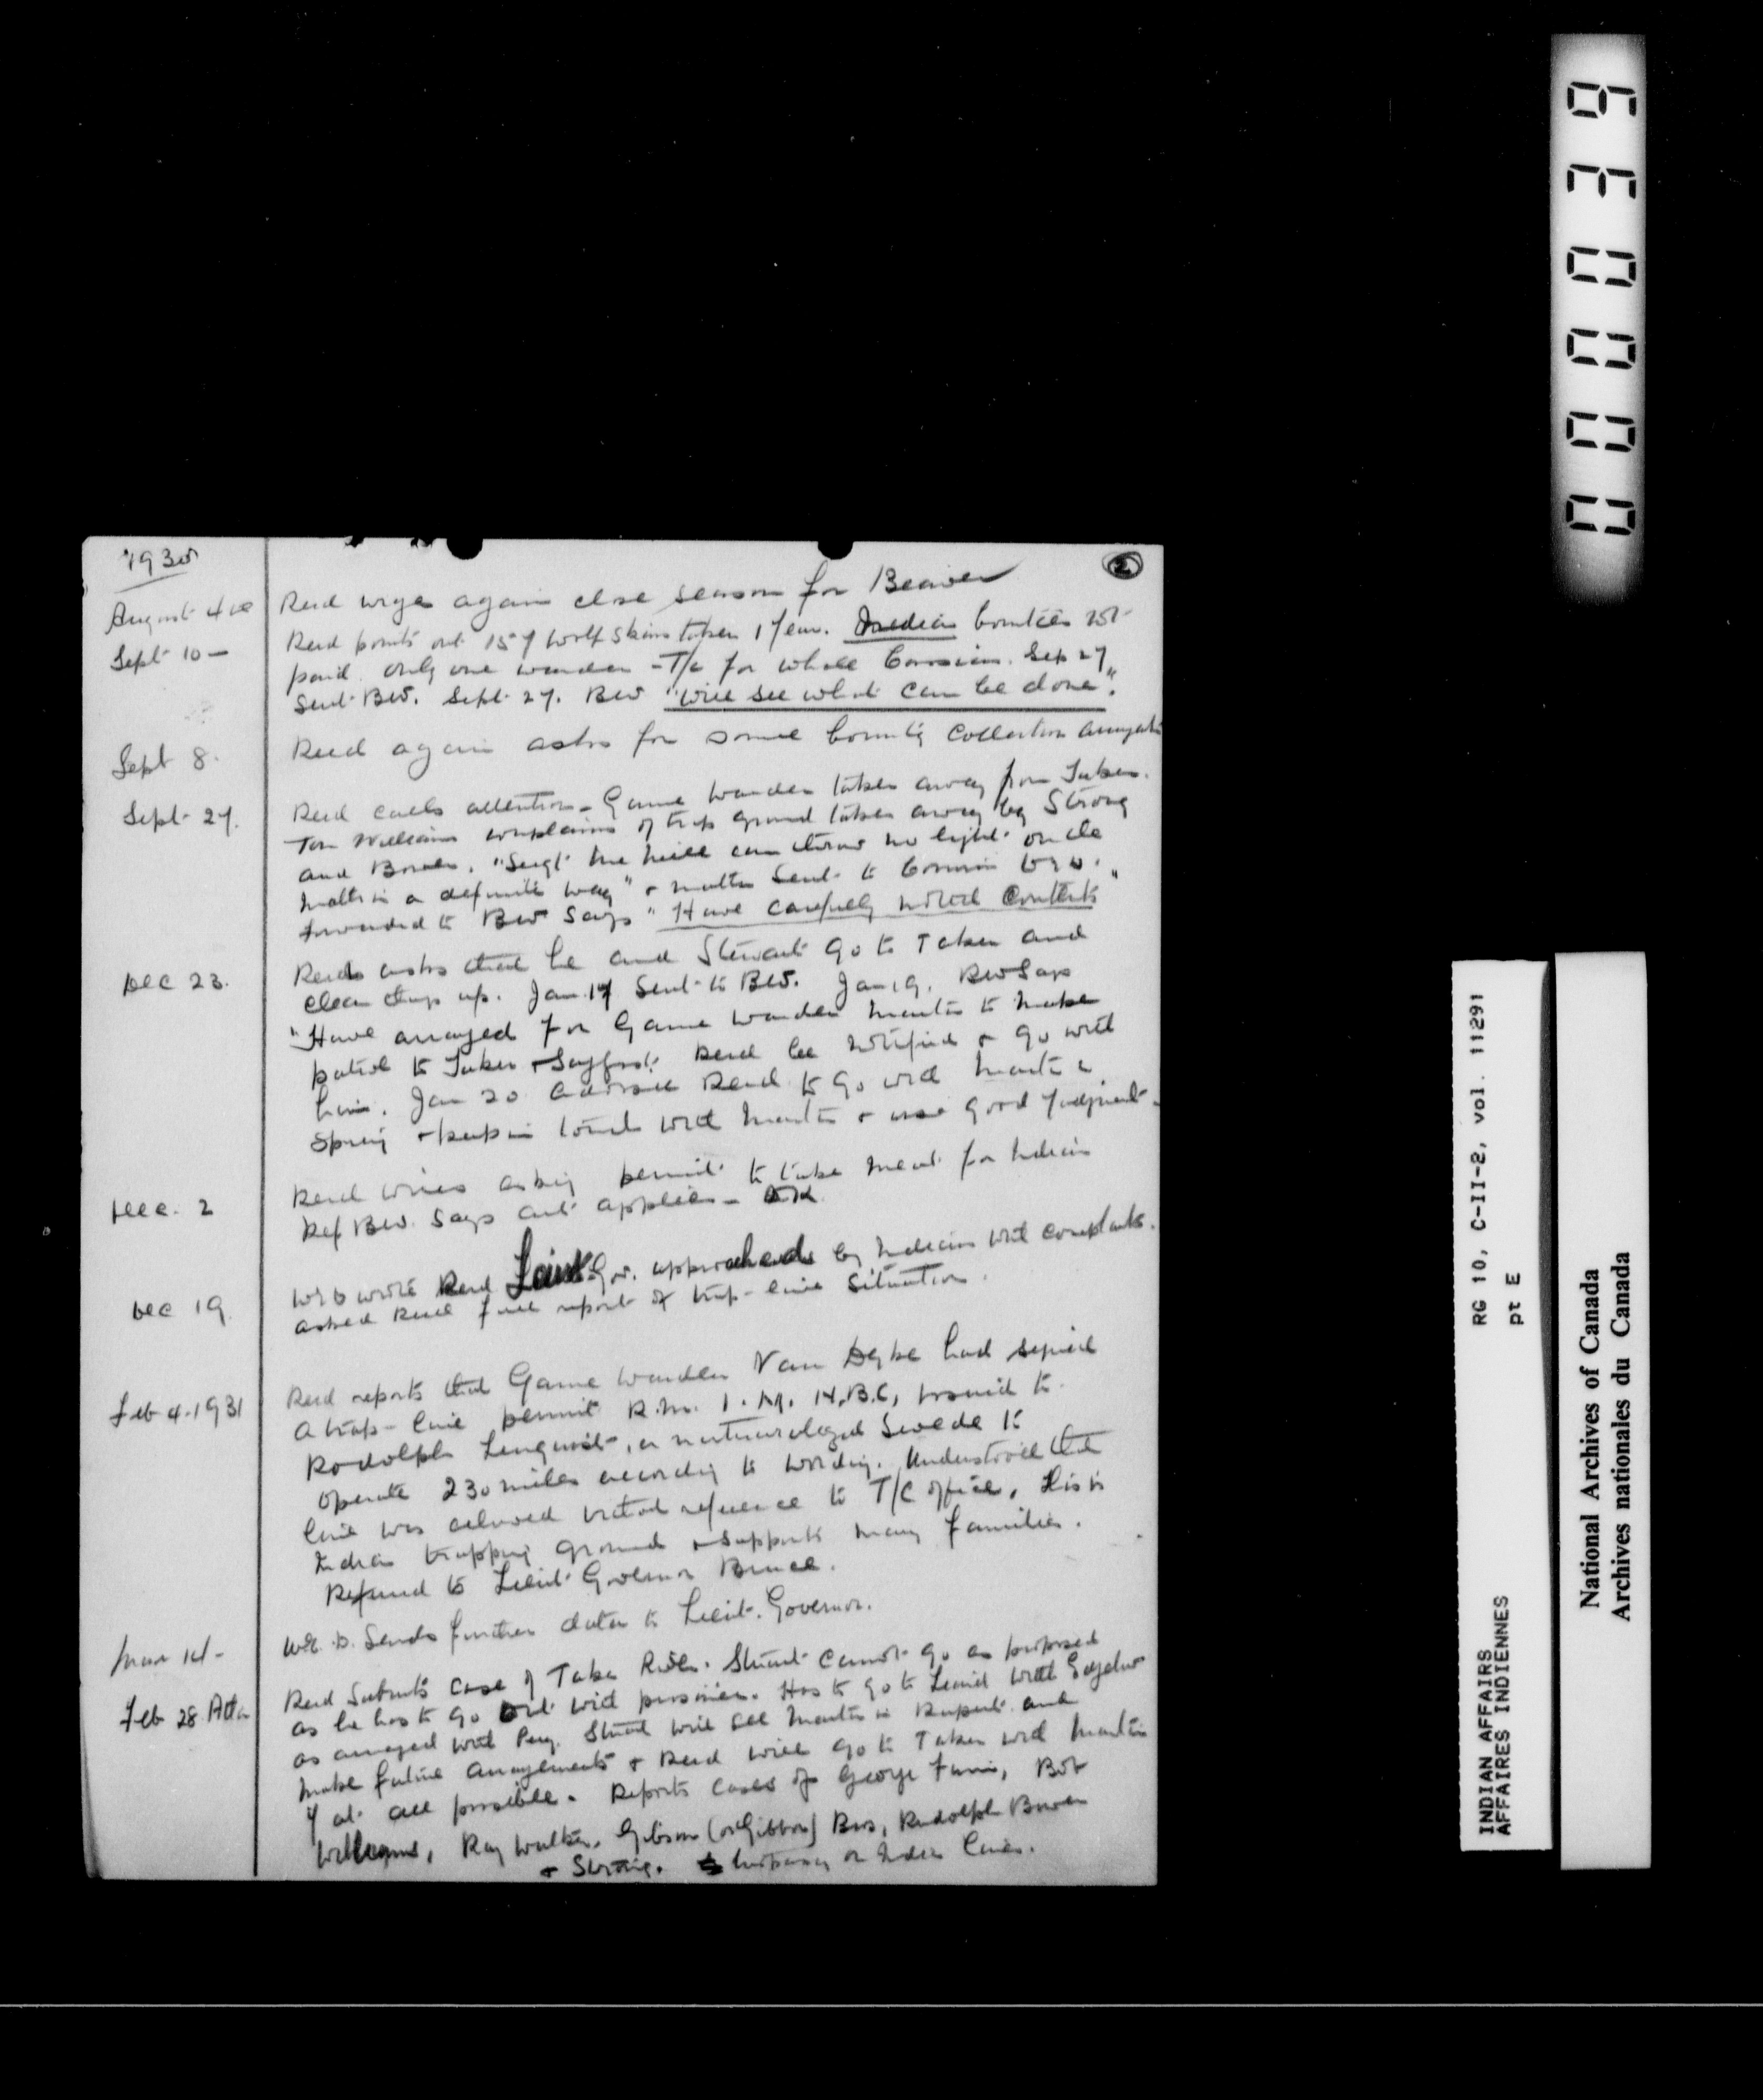 1930
2
August 4
Reid urges again close season for Beaver
Sept 10 —
Reid points out 157 wolf skins taken 1 year. Indian bounties not
paid. Only one warden - T/C for whole Cassiar. Sep 27
Sent BW. Sept 27. BW "will see what can be done".
Sept 8.
Reid again asks for some bounty collection
Sept 27.
Reid calls attention - Game Warden taken away from Taken.
Tom Williams complains of trap ground taken away by Strong
and Bowen. can throw no light on the
matter in a definite way" & matter sent to
forwarded to BW Says "Have carefully noted contents"
Dec 23.
Reid asks that he and Stewart go to Taken and
clean things up. Jan 17 Sent to BW. Jan 19. BW Says
"Have arranged for Game Warden Martin to make
patrol to Taken Reid be notified & go with
him. Jan 20 advised Reid to go with Martin in
Spring & keep in touch with Martin & use good judgment -
Dec. 2
Reid wires asking permit to take meat for Indians
Ref BW. Says act applies -
Dec 19
wrote Reid Lieut Gov. approached by Indians with complaints.
asked Reid full report of trap-line situation.
Feb 4-1931
Reid reports that Game Warden Van Dyke had signed
a trap-line permit R.M. 1. M. H.B.C, issued to
Rodolph Lenquist, a naturalized Swede to
operate 230 miles according to wording. Understood that
line was allowed without reference to T/C office. This is
Indian trapping ground & supports many families.
Referred to Lieut Governor Bruce.
Mar 14 -
Sends further data to Lieut. Governor.
Feb 28
Reid Submits case of Taku River. Stuart cannot go as proposed
as he has to go out with prisoner. Has to go to with
as arranged with Stuart will see Martin in Rupert and
make future arrangements & Reid will go to Taken with Martin
if at all possible. Reports cases of George Bob
Williams, Ray Walker, Gibson (or Gibbon) Bros, Rudolph Bowen
& Strong. on Indian lines.
000039
INDIAN AFFAIRS RG 10, C-II-2, vol. 11291
AFFAIRES INDIENNES pt E
National Archives of Canada
Archives nationales du Canada